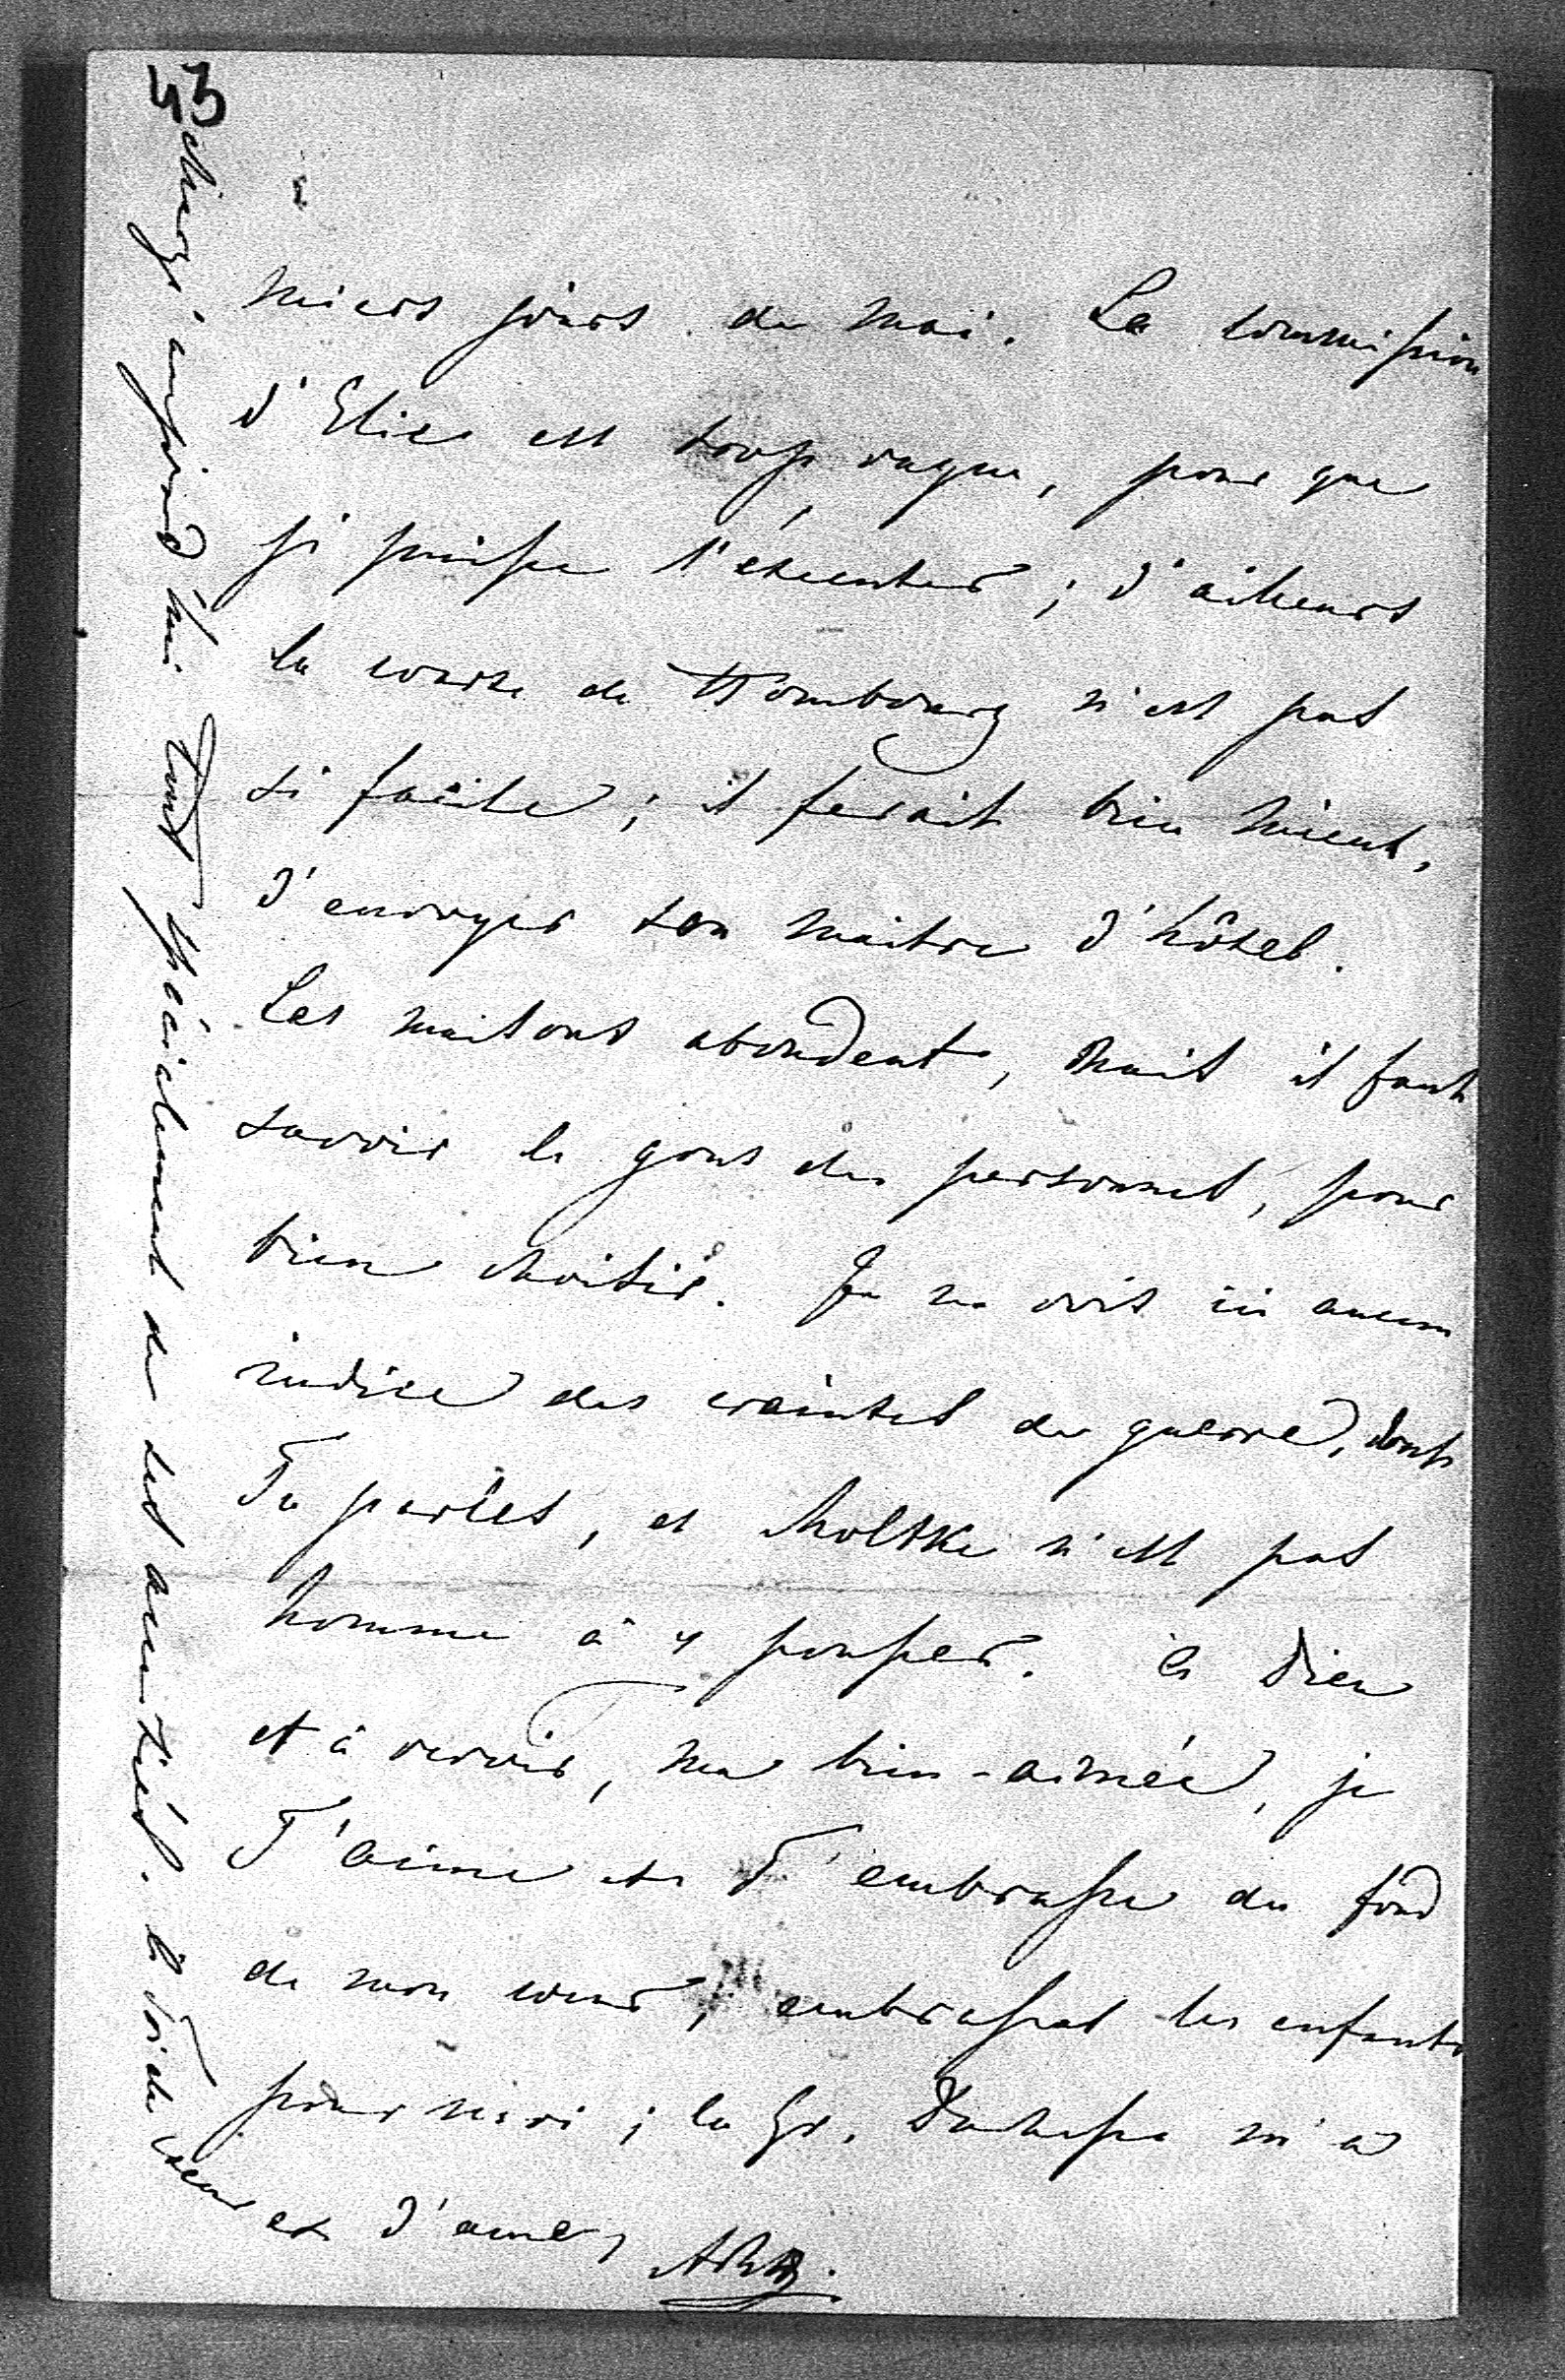 43
miers jours de mai. La commission
d'Elise est trop vague, pour que
je puisse l'exécuter; d'ailleurs
la course de Hombourg n'est pas
si facile; il ferait bien mieux,
d'envoyer son maitre d'hôtel.
Les maisons abondent, mais il faut
savoir le gout des personnes, pour
bien choisir. Je ne vois ici aucun
indice des craintes de guerre, dont
Tu parles, et Moltke n'est pas
homme à y pousser. à Dieu
et à revoir, ma bien-aimée, je
T'aime et T'embrasse du fond
de mon coeur, embrasses les enfants
pour moi; la Gr. Duchesse m'a
chargé aujourd'hui tout spécialement de ses amitiés. à Toi de coeur
et d'ame,